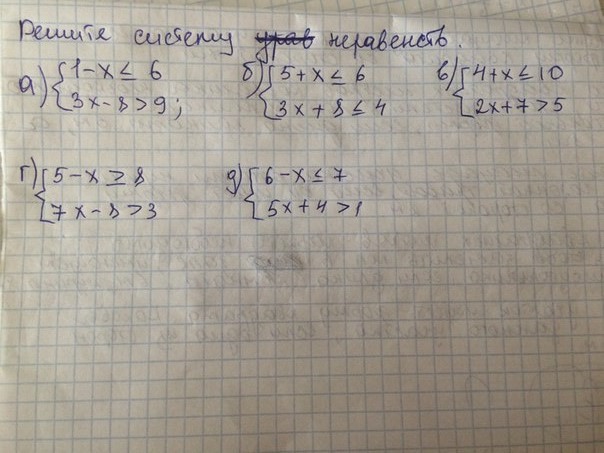 Решите систему урав неравенств.
а) { 1-x ≤ 6
3x-8>9;
б) { 5+x ≤ 6
3x+8 ≤ 4
в) { 4+x ≤ 10
2x+7>5
г) { 5-x ≥ 8
7x-8>3
д) { 6-x ≤ 7
5x+4>1